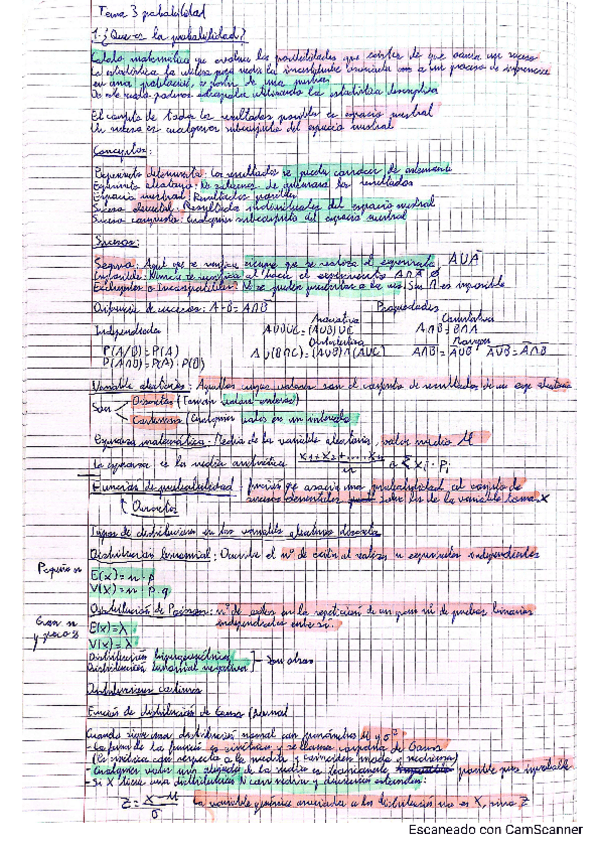 Tema 3 probabilidad
1. ¿Que es la probabilidad?
Calculo matematico que evalua las posibilidades que existen de que ocurra un suceso
La estadistica la utiliza para medir la incertidumbre asociada con a un proceso de inferencia
en una población, a partir de una muestra
De este modo podemos utilizando la estadistica descriptiva
El conjunto de todos los resultados posibles es espacio muestral
Un suceso es cualquier subconjunto del espacio muestral
Conceptos:
Experimento determinista: Los resultados se pueden conocer de antemano
Experimento aleatorio: No sabemos de antemano los resultados
Espacio muestral: Resultados posibles
Suceso elemental: Resultados individuales del espacio muestral
Suceso compuesto: Cualquier subconjunto del espacio muestral
Sucesos:
Seguro: Aquel que se verifica siempre que se realiza el experimento A∪Ā
Imposible: Nunca se verifica al hacer el experimento A∩Ā Ø
Excluyentes o Incompatibles: No se pueden a la vez. Son ∩ es imposible
Diferencia de sucesos: A-B = A∩B̄ Propiedades
Independientes Asociativa Conmutativa
A∪B∪C = (A∪B)∪C A∩B = B∩A
P(A/B) = P(A) Distributiva Morgan
P(A∩B) = P(A)·P(B) A∪(B∩C) = (A∪B)∩(A∪C)
Variable aleatoria: Aquellas cuyos valores son el conjunto de resultados de un exp aleatorio
Son Discretas (Toman valores enteros)
Continuas (Cualquier valor en un intervalo)
Esperanza matematica: Media de la variable aleatoria, valor medio M
La esperanza es la media aritmética x1+x2+...xn / n Σ xi·Pi
Función de probabilidad función que asocia una probabilidad al conjunto de
sucesos elementales de la variable toma X
↑ Discreta
Tipos de distribuciones en las variables aleatorias discreta
Distribución binomial: Describe el nº de exitos al realizar n experimentos independientes
Pequeño n
E(x) = n·p
V(x) = n·p·q
Distribución de Poisson: nº de exitos en la repetición de un gran nº de pruebas binarias
independientes entre sí.
Gran n
E(x) = λ
V(x) = λ
Distribución hipergeométrica
Distribución binomial negativa } - Son otras
Distribuciones continuas
Función de distribución de Gauss / Normal
Cuando sigue una distribución normal con parámetros M y σ²
- La forma de la función es simétrica y se llama campana de Gauss
(Es simétrica con respecto a la media y coinciden moda y mediana)
- Cualquier valor muy alejado de la media es teoricamente posible pero improbable
- Si X tiene una distribución N con media y
Z = X-M / σ La variable asociada a la distribución no es X, sino Z
Escaneado con CamScanner